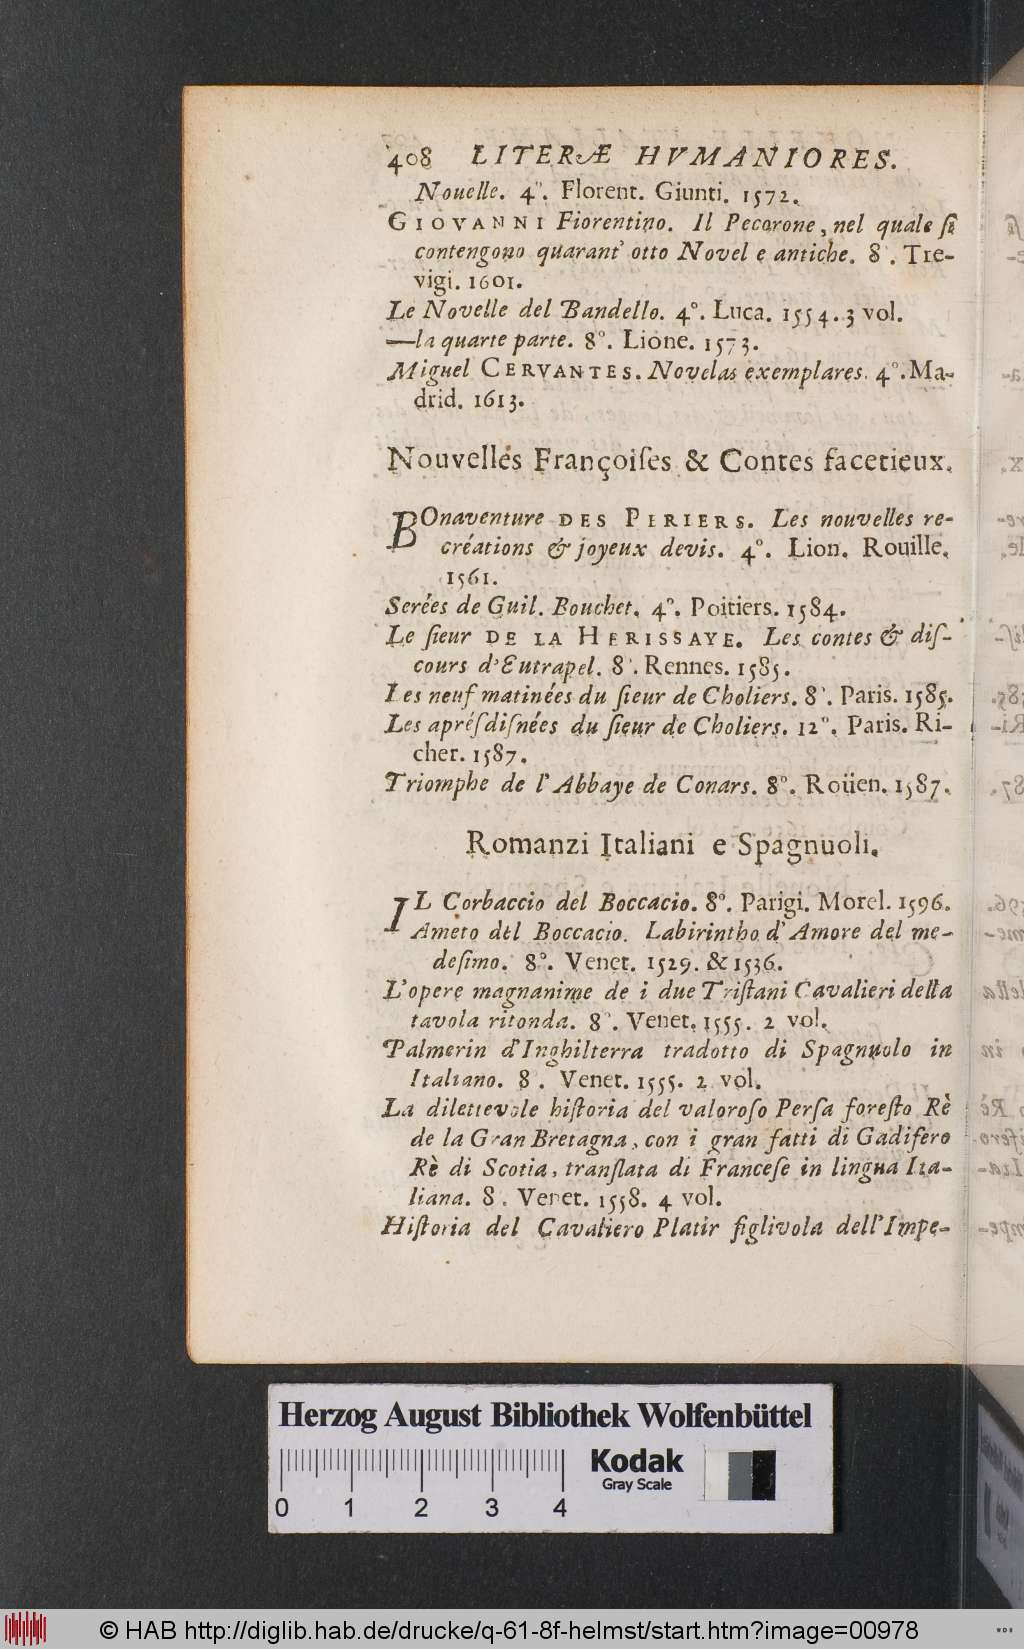 408 LITERÆ HVMANIORES.
Nouelle. 4°. Florent. Giunti. 1572.
GIOVANNI Fiorentino. Il Pecorone, nel quale ſi
contengono quarant' otto Novel e antiche. 8°. Tre-
vigi. 1601.
Le Novelle del Bandello. 4°. Luca. 1554. 3 vol.
—la quarte parte. 8°. Lione. 1573.
Miguel CERVANTES. Novelas exemplares. 4°. Ma-
drid. 1613.
Nouvelles Françoiſes & Contes facetieux.
BOnaventure DES PERIERS. Les nouvelles re-
créations & joyeux devis. 4°. Lion. Rouille.
1561.
Serées de Guil. Bouchet. 4°. Poitiers. 1584.
Le ſieur DE LA HERISSAYE. Les contes & diſ-
cours d'Eutrapel. 8°. Rennes. 1585.
Les neuf matinées du ſieur de Choliers. 8°. Paris. 1585.
Les apréſdiſnées du ſieur de Choliers. 12°. Paris. Ri-
cher. 1587.
Triomphe de l'Abbaye de Conars. 8°. Roüen. 1587.
Romanzi Italiani e Spagnuoli.
IL Corbaccio del Boccacio. 8°. Parigi. Morel. 1596.
Ameto del Boccacio. Labirintho d'Amore del me-
deſimo. 8°. Venet. 1529. & 1536.
L'opere magnanime de i due Triſtani Cavalieri della
tavola ritonda. 8°. Venet. 1555. 2 vol.
Palmerin d'Inghilterra tradotto di Spagnuolo in
Italiano. 8°. Venet. 1555. 2 vol.
La dilettevole hiſtoria del valoroſo Perſa foreſto Rè
de la Gran Bretagna, con i gran fatti di Gadifero
Rè di Scotia, translata di Franceſe in lingua Ita-
liana. 8°. Venet. 1558. 4 vol.
Hiſtoria del Cavaliero Platir figlivola dell'Impe-
Herzog August Bibliothek Wolfenbüttel
Kodak
Gray Scale
0 1 2 3 4
© HAB http://diglib.hab.de/drucke/q-61-8f-helmst/start.htm?image=00978